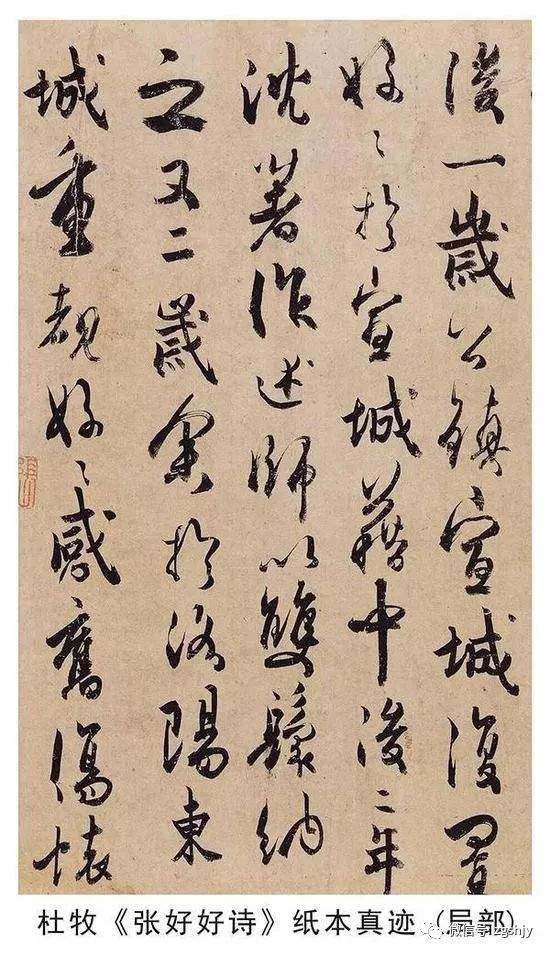 後一歲公鎮宣城復置
好〻於宣城籍中後二年
沈著作述師以雙鬟納
之又二歲余於洛陽東
城重覩好〻感舊傷懷
杜牧《张好好诗》纸本真迹(局部)
微信号: zgshjy